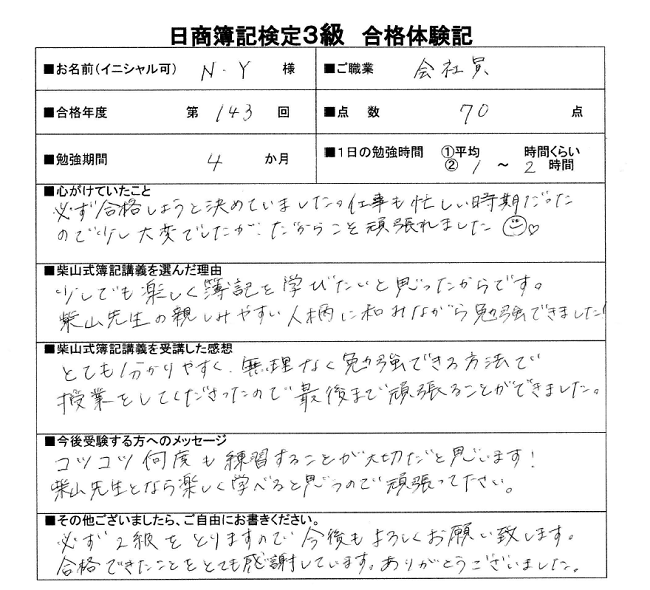 日商簿記検定3級 合格体験記
■お名前(イニシャル可) N.Y 様 ■ご職業 会社員
■合格年度 第 143 回 ■点 数 70 点
■勉強期間 4 か月 ■1日の勉強時間 ①平均 時間くらい
② 1 ～ 2 時間
■心がけていたこと
必ず合格しようと決めていました。仕事も忙しい時期だった
ので少し大変でしたが、だからこそ頑張れました
■柴山式簿記講義を選んだ理由
少しでも楽しく簿記を学びたいと思ったからです。
柴山先生の親しみやすい人柄に和みながら勉強できました!
■柴山式簿記講義を受講した感想
とても分かりやすく、無理なく勉強できる方法で
授業をしてくださったので最後まで頑張ることができました。
■今後受験する方へのメッセージ
コツコツ何度も練習することが大切だと思います!
柴山先生となら楽しく学べると思うので頑張ってださい。
■その他ございましたら、ご自由にお書きください。
必ず2級をとりますので今後もよろしくお願い致します。
合格できたことをとても感謝しています。ありがとうございました。